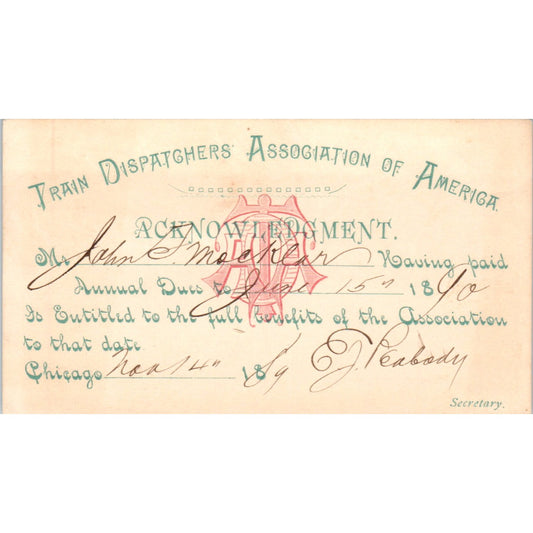 TRAIN DISPATCHERS ASSOCIATION OF AMERICA.
ACKNOWLEDGMENT.
Mr John F. Mockler Having paid
Annual Dues to June 15th 1890
Is Entitled to the full benefits of the Association
to that date
Chicago Nov 14th 1889 E J Peabody
Secretary.